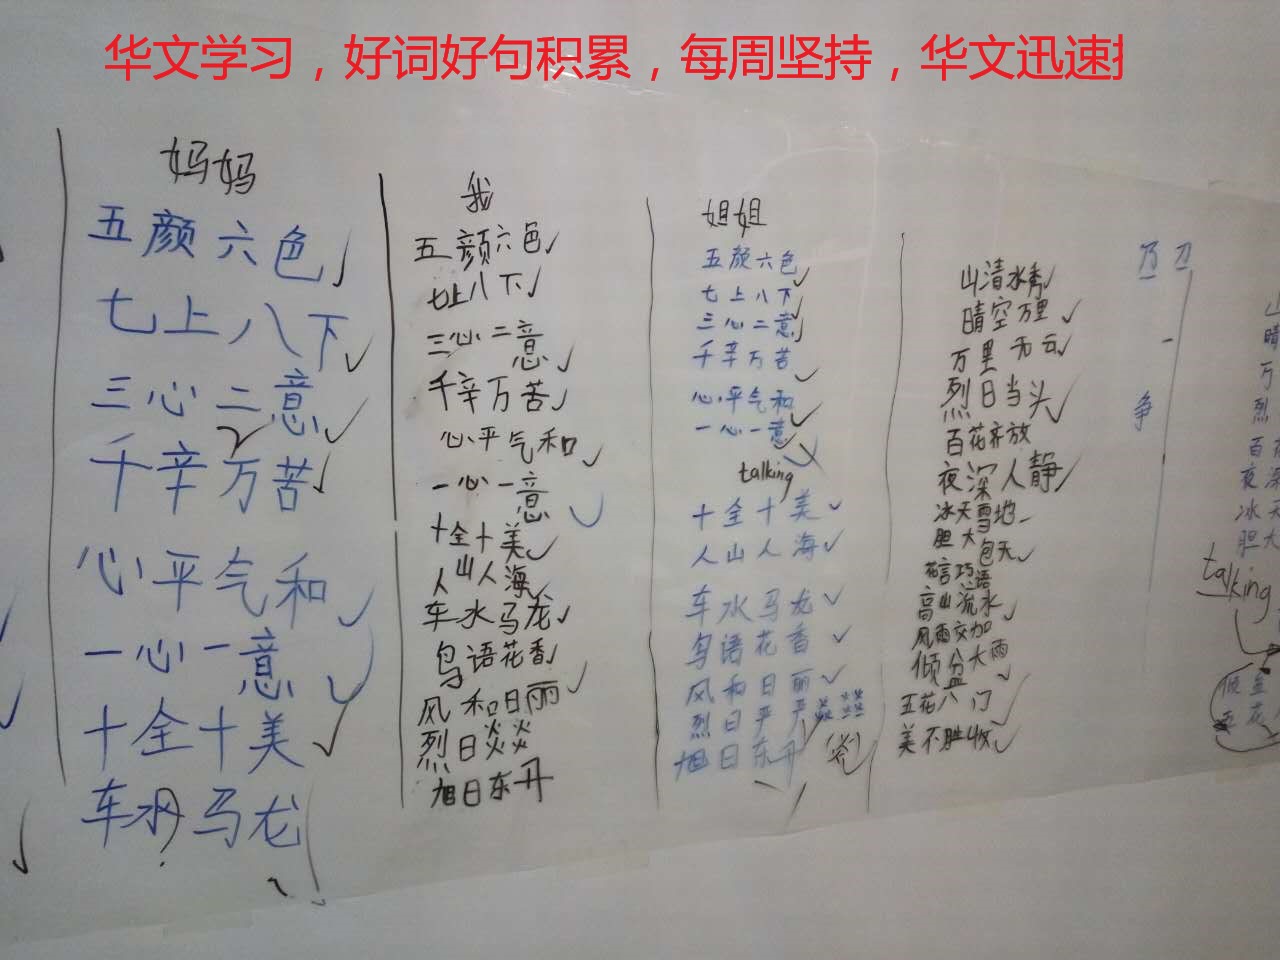 华文学习，好词好句积累，每周坚持，华文迅速
妈妈
五颜六色
七上八下
三心二意
千辛万苦
心平气和
一心一意
十全十美
车水马龙
我
五颜六色
七上八下
三心二意
千辛万苦
心平气和
一心一意
十全十美
人山人海
车水马龙
鸟语花香
风和日丽
烈日炎炎
旭日东升
姐姐
五颜六色
七上八下
三心二意
千辛万苦
心平气和
一心一意
talking
十全十美
人山人海
车水马龙
鸟语花香
风和日丽
烈日
旭日东升
山清水秀
晴空万里
万里无云
烈日当头
百花齐放
夜深人静
冰天雪地
胆大包天
花言巧语
高山流水
风雨交加
倾盆大雨
五花八门
美不胜收
乃 刀
争
山
晴
万
烈
百花
夜深
冰天
胆大
talking
倾盆
五花